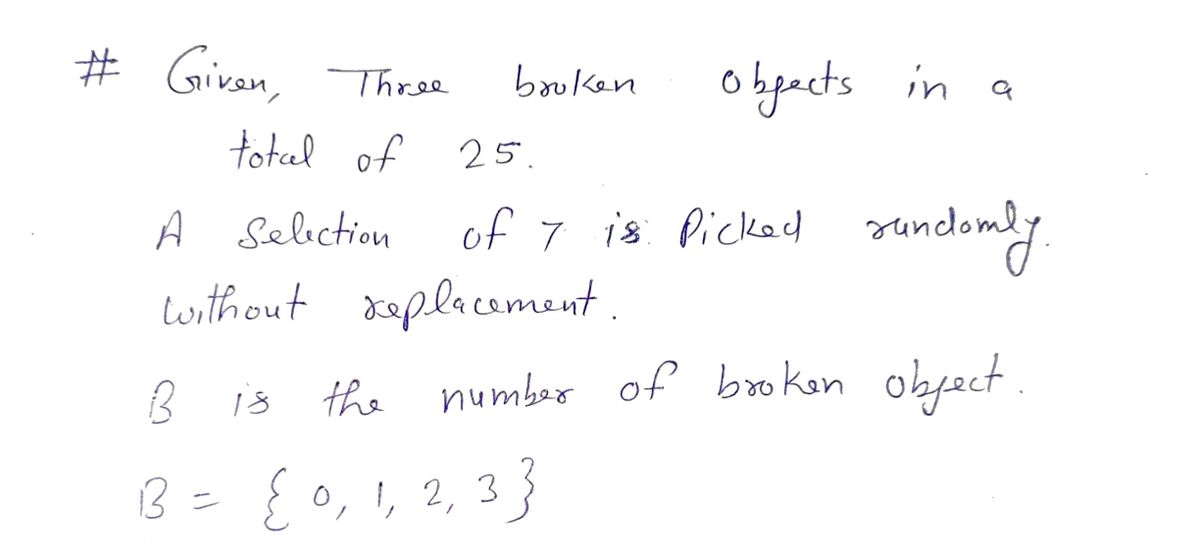 # Given, Three broken objects in a
total of 25.
A Selection of 7 is Picked randomly.
without replacement.
B is the number of broken object.
B = { 0, 1, 2, 3 }